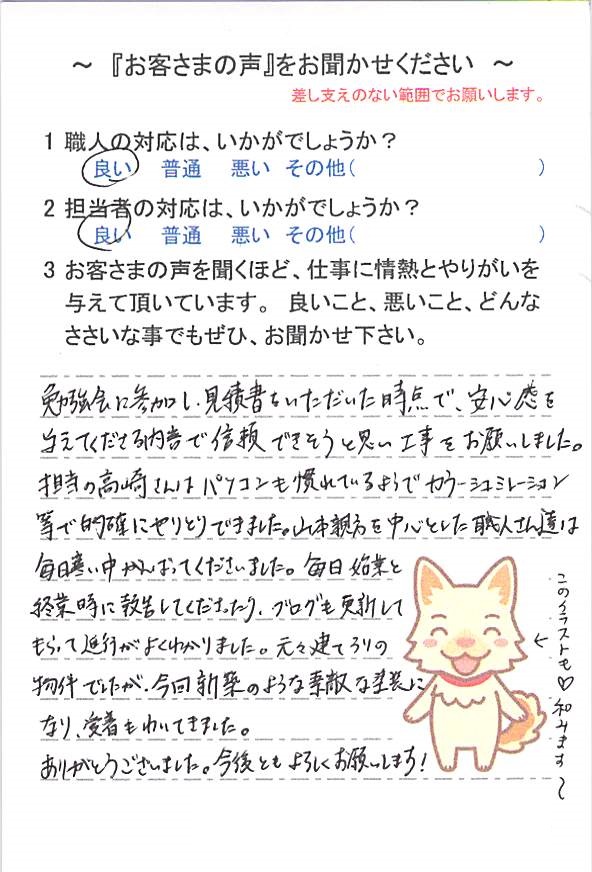 ～ 『お客さまの声』をお聞かせください ～
差し支えのない範囲でお願いします。
1 職人の対応は、いかがでしょうか？
良い 普通 悪い その他( )
2 担当者の対応は、いかがでしょうか？
良い 普通 悪い その他( )
3 お客さまの声を聞くほど、仕事に情熱とやりがいを
与えて頂いています。 良いこと、悪いこと、どんな
ささいな事でもぜひ、お聞かせ下さい。
勉強会に参加し、見積書をいただいた時点で、安心感を
与えてくださる内容で信頼できそうと思い工事をお願いしました。
担当の高崎さんはパソコンも慣れているようでカラーシュミレーション
等で的確にやりとりできました。山本親方を中心とした職人さん達は
毎日寒い中がんばってくださいました。毎日始業と
終業時に報告してくださったり、ブログも更新して
もらって進行がよくわかりました。元々建て売りの
物件でしたが、今回新築のような素敵な塗装に
なり、愛着もわいてきました。
ありがとうございました。今後ともよろしくお願いします！
←このイラストも♡和みます～